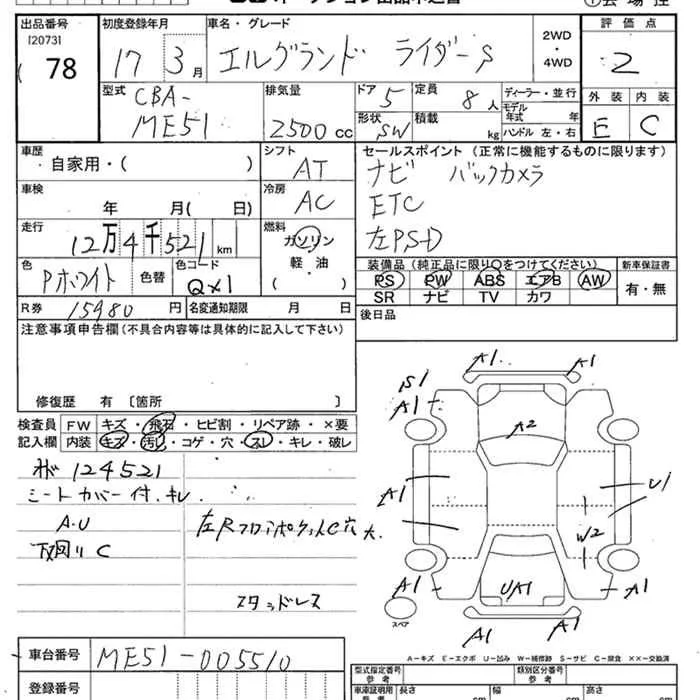 出品番号 初度登録年月 車名・グレード 評価点
120731
78
17 3月
エルグランド ライダーS
2WD
・
4WD
2
型式 CBA-
ME51
排気量
2500cc
ドア 5
定員 8人
ディーラー・並行
モデル年式 年
形状 SW
積載 kg
ハンドル 左・右
外装 内装
E C
車歴
自家用・( )
シフト
AT
セールスポイント(正常に機能するものに限ります)
ナビ バックカメラ
ETC
左PSD
車検
年 月( 日)
冷房
AC
走行
12万4千521km
燃料
ガソリン
軽・油
・( )
色
Pホワイト
色替
色コード
QX1
装備品(純正品に限り○をつけてください) 新車保証書
PS PW ABS エアB AW
SR ナビ TV カワ
有・無
R券 15980円 名変通知期限 月 日
後日品
注意事項申告欄(不具合内容等は具体的に記入して下さい)
修復歴 有〔箇所 〕
検査員 FW キズ・飛石・ヒビ割・リペア跡・×要
記入欄 内装 キズ・汚れ・コゲ・穴・スレ・キレ・破レ
124521
シートカバー付、キレ.
A・U
下回りC
左RフロアポケットC穴大.
スタッドレス
A1 A1
S1
A1
A2
A1
U1
W2
A1 UA1 A1
スペア
A1 A1
A-キズ E-エクボ U-凹み W-補修跡 S-サビ C-腐食 ××-交換済
車台番号 ME51-005510
登録番号
型式指定番号 参考
類別区分番号 参考
車庫証明用 参考
長さ cm
幅 cm
高さ cm